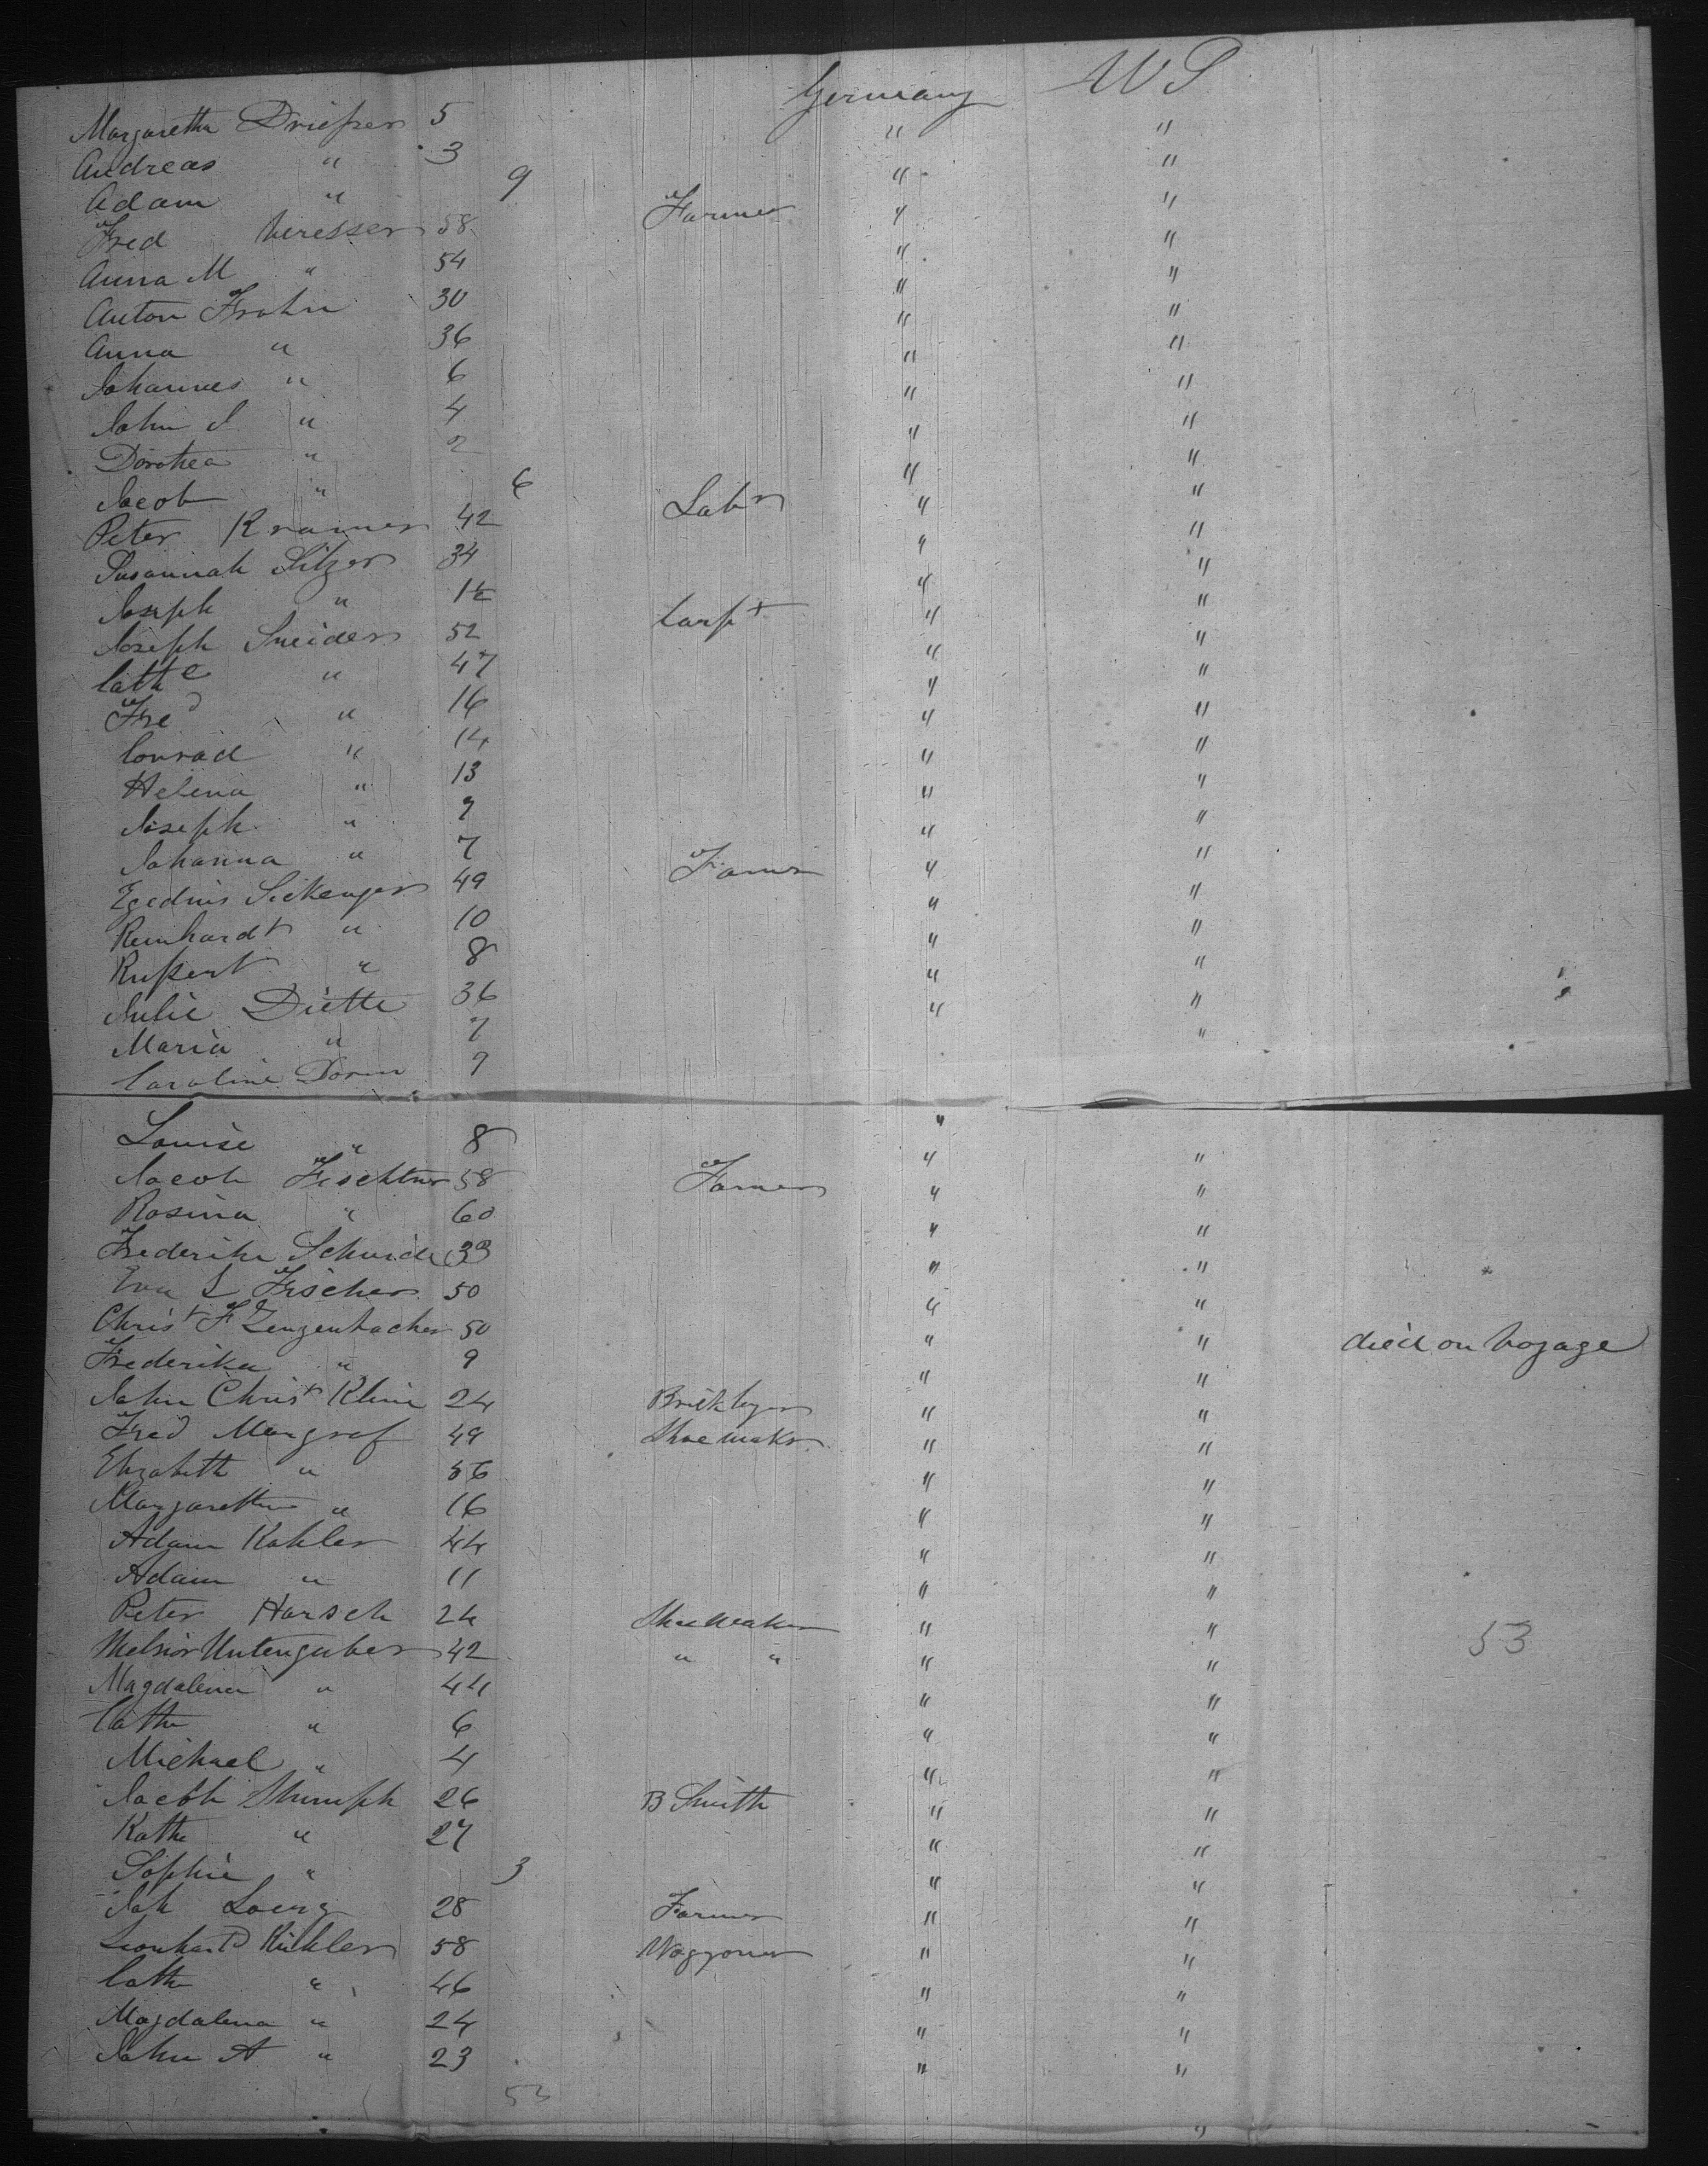 Margaretha Driesser 5 Germany U S
Andreas " 3 " "
Adam " 9 " "
Fred Veresser 58 Farmer " "
Anna M " 54 " "
Anton Frohn 30 " "
Anna " 36 " "
Johannes " 6 " "
John S " 4 " "
Dorothea " 2 " "
Jacob " 6 " "
Peter Kramer 42 Labr " "
Susannah Sitzer 34 " "
Joseph " 1½ " "
Joseph Sneider 52 Carpt " "
Cathe " 47 " "
Fred " 16 " "
Conrad " 14 " "
Helena " 13 " "
Joseph " 9 " "
Johanna " 7 " "
Egedius Sickenger 49 Farmr " "
Reinhardt " 10 " "
Rupert " 8 " "
Julie Diette 36 " "
Maria " 7 " "
Caroline Dorm 9
Louise " 8 "
Jacob Fischtner 58 Farmer " "
Rosina " 60 " "
Frederike 33 " "
Eva L Fischer 50 " "
Christ Fd Zengenbacher 50 " "
Frederika " 9 " " died on voyage
John Christ Klein 24 Bricklayer " "
Fred Margraf 49 Shoemaker " "
Elizabeth " 56 " "
Margaretha " 16 " "
Adam Kohler 44 " "
Adam " 11 " "
Peter Harsch 24 Shoemaker " "
Melsior Untenguber 42 " " " " 53
Magdalena " 44 " "
Cathe " 6 " "
Michael " 4 " "
Jacob Shrumph 26 B Smith " "
Kathe " 27 " "
Sophie " 3 " "
Joh Loeng 28 Farmer " "
Leonhard Kichler 58 Waggoner " "
Cathe " 46 " "
Magdalena " 24 " "
John A " 23 " "
53 "